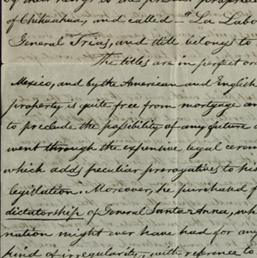 of Chihuahua, and called "La Labo
General Trias, and still belongs to
The titles are in perfect or
Mexico, and by the American and English
property is quite free from mortgage an
to preclude the possibility of any future
went through the expensive legal cerem
which adds peculiar prerogatives to his
legislation. Moreover, he purchased
dictatorship of General Santa Anna, wh
nation might ever have had for any
kind of irregularity, with reference to